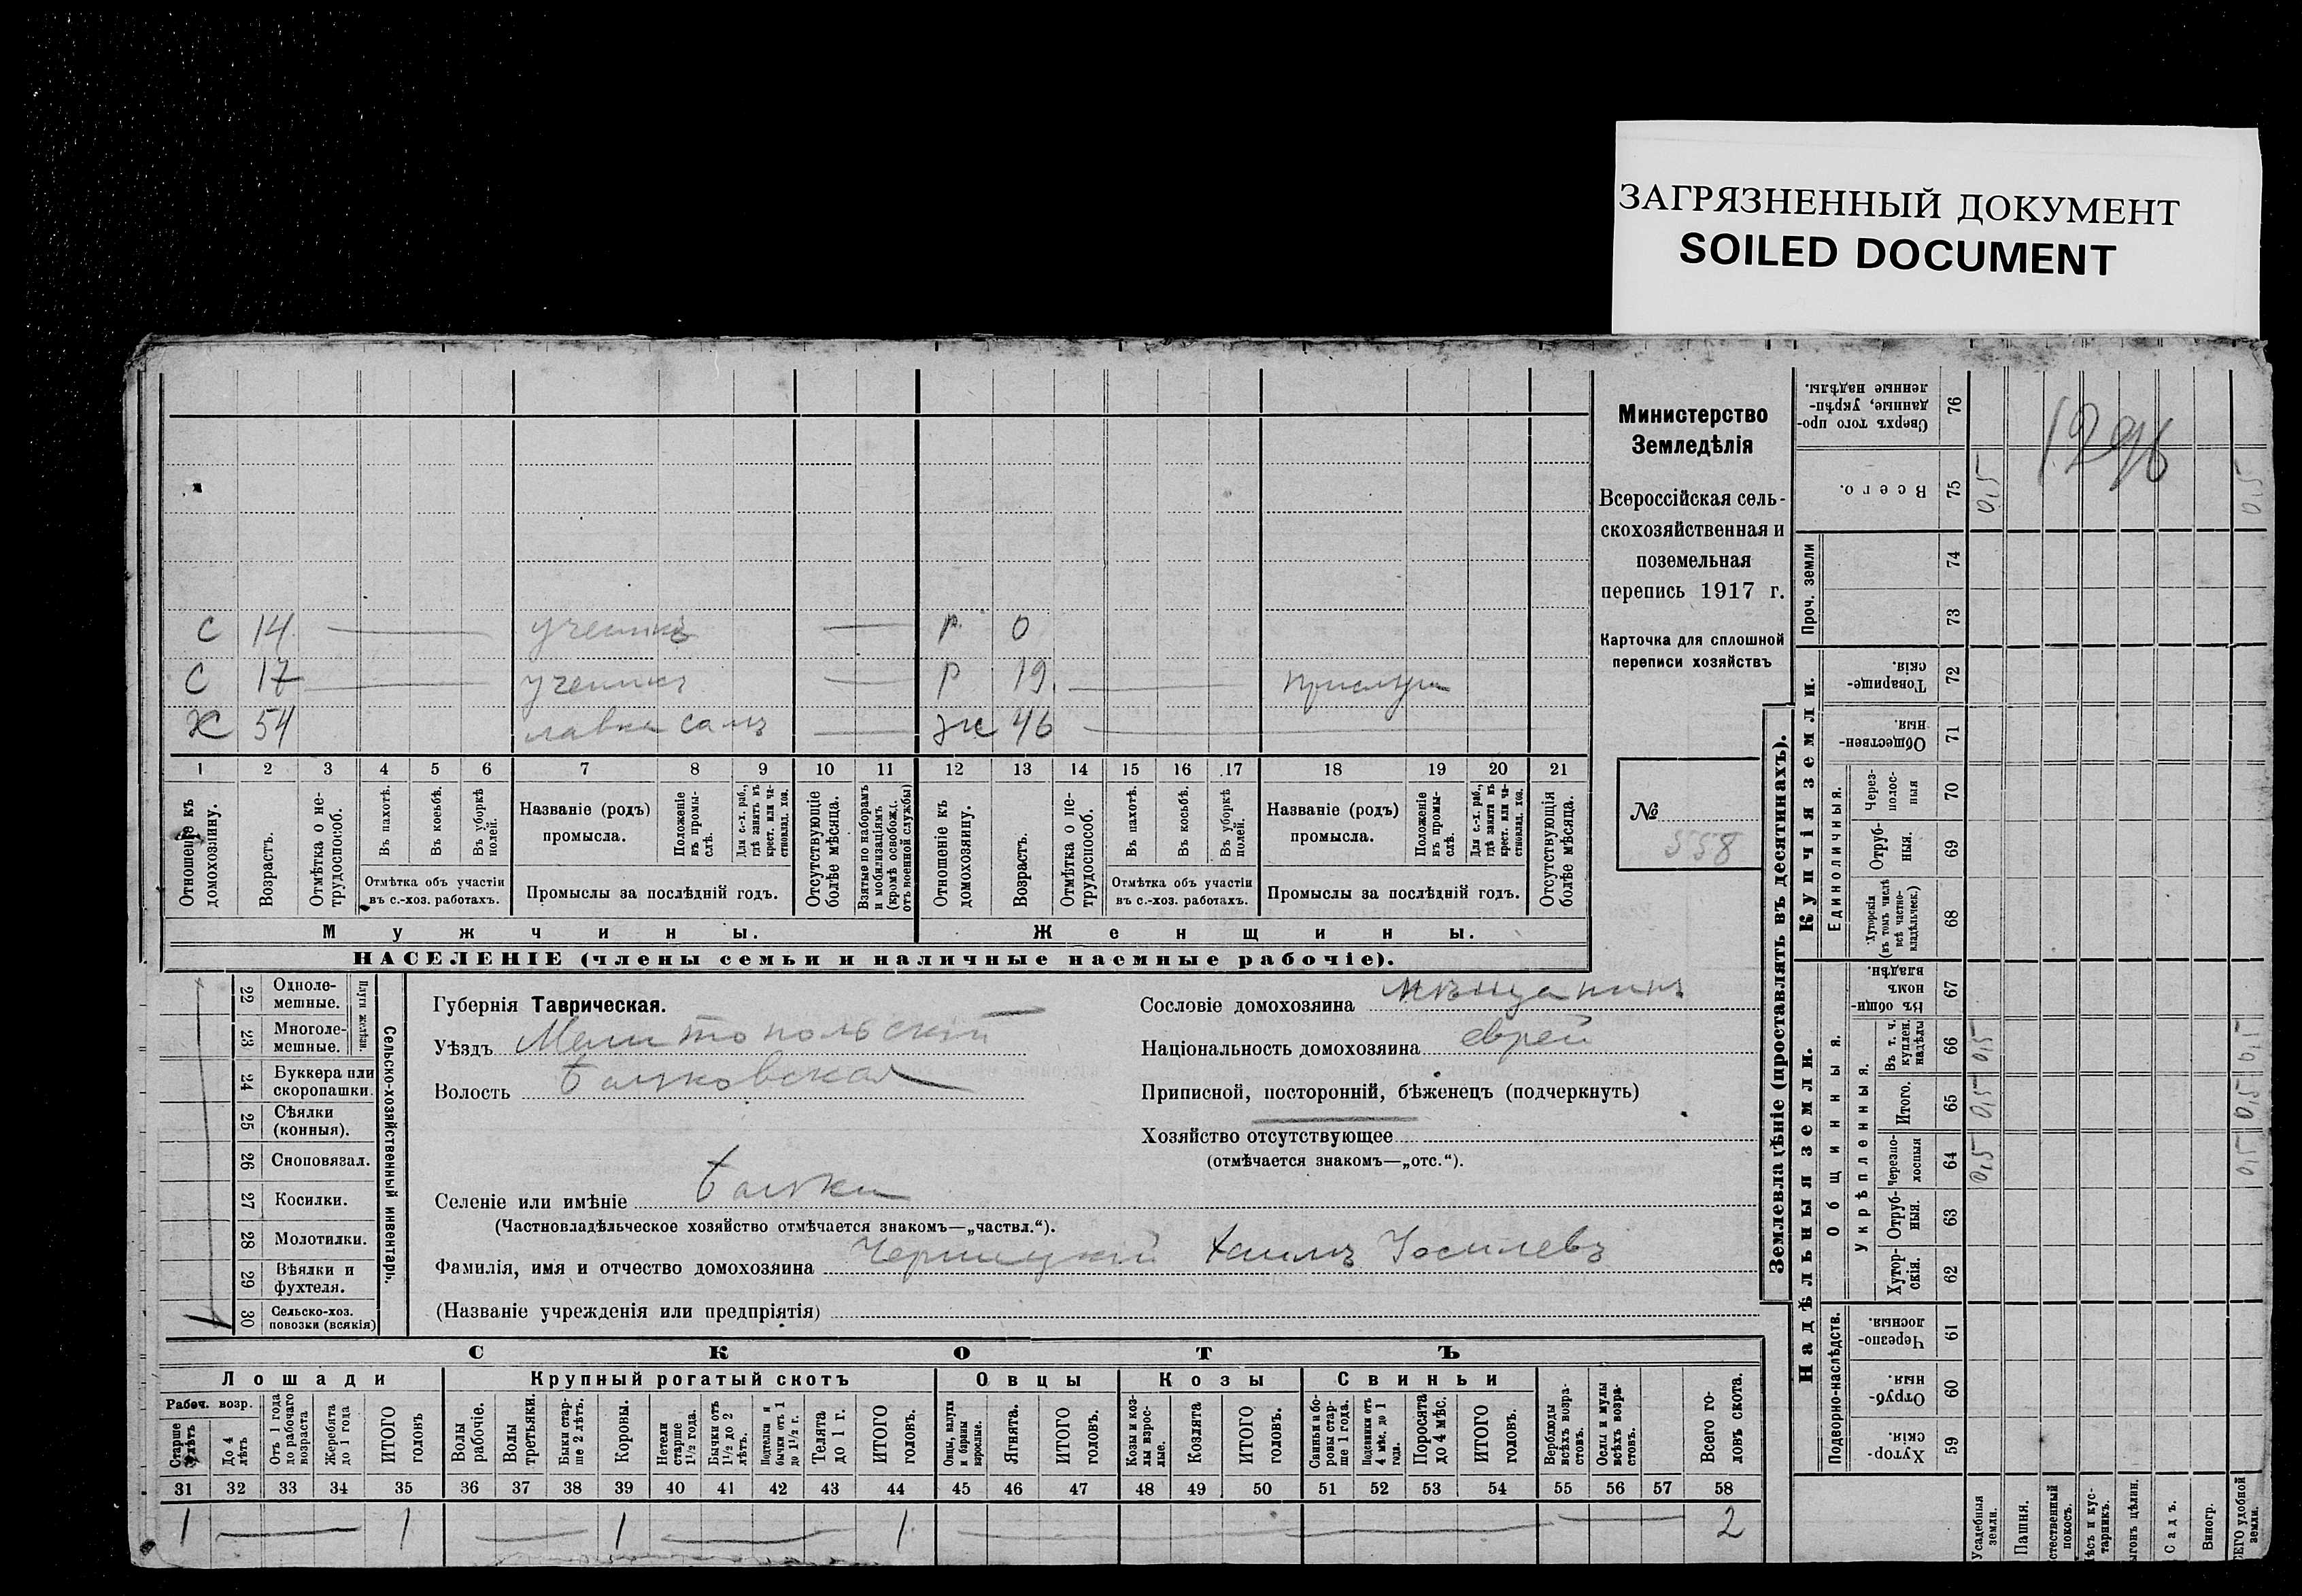 ЗАГРЯЗНЕННЫЙ ДОКУМЕНТ
SOILED DOCUMENT
С 14 ученикъ Р 0
С 17 ученикъ Р 19 прислуга
Х 54 лавка самъ ж 46
1 2 3 4 5 6 7 8 9 10 11 12 13 14 15 16 17 18 19 20 21
Отношеніе къ домохозяину.
Возрастъ.
Отмѣтка о не-трудоспособ.
Въ пахотѣ.
Въ косьбѣ.
Въ уборкѣ полей.
Отмѣтка объ участіи въ с.-хоз. работахъ.
Названіе (родъ) промысла.
Положеніе въ промы-слѣ.
Для с.-х. раб., гдѣ занятъ въ крест. или ча-стновлад. хоз.
Промыслы за послѣдній годъ.
Отсутствующіе болѣе мѣсяца.
Взятые по наборамъ и мобилизаціямъ (кромѣ освобожд. отъ военной службы)
Отношеніе къ домохозяину.
Возрастъ.
Отмѣтка о не-трудоспособ.
Въ пахотѣ.
Въ косьбѣ.
Въ уборкѣ полей.
Отмѣтка объ участіи въ с.-хоз. работахъ.
Названіе (родъ) промысла.
Положеніе въ промы-слѣ.
Для с.-х. раб., гдѣ занята въ крест. или ча-стновлад. хоз.
Промыслы за послѣдній годъ.
Отсутствующія болѣе мѣсяца.
Мужчины.
Женщины.
НАСЕЛЕНІЕ (члены семьи и наличные наемные рабочіе).
Министерство
Земледѣлія
Всероссійская сель-
скохозяйственная и
поземельная
перепись 1917 г.
Карточка для сплошной
переписи хозяйствъ
№
558
22 Одноле-мешные.
23 Многоле-мешные.
Плуги желѣзн.
24 Буккера или скоропашки.
25 Сѣялки (конныя).
26 Сноповязал.
27 Косилки.
28 Молотилки.
29 Вѣялки и фухтеля.
30 Сельско-хоз. повозки (всякія)
Сельско-хозяйственный инвентарь.
Губернія Таврическая.
Уѣздъ Мелитопольскій
Волость Балковская
Селеніе или имѣніе Балки
(Частновладѣльческое хозяйство отмѣчается знакомъ—„частвл.“).
Фамилія, имя и отчество домохозяина Хаимъ Іосилевъ
(Названіе учрежденія или предпріятія)
Сословіе домохозяина мѣщанинъ
Національность домохозяина еврей
Приписной, посторонній, бѣженецъ (подчеркнуть)
Хозяйство отсутствующее
(отмѣчается знакомъ—„отс.“).
СКОТЪ
Лошади
Крупный рогатый скотъ
Овцы
Козы
Свиньи
Рабоч. возр.
Старше лѣтъ
До 4 лѣтъ
Отъ 1 года до рабочаго возраста
Жеребята до 1 года
ИТОГО головъ
Волы рабочіе.
Волы третьяки.
Быки стар-ше 2 лѣтъ.
Коровы.
Нетели старше 1½ года.
Бычки отъ 1½ до 2 лѣтъ.
Подтелки и бычки отъ 1 до 1½ г.
Телята до 1 г.
ИТОГО головъ.
Овцы, валухи и бараны взрослые.
Ягнята.
ИТОГО головъ.
Козы и коз-лы взрос-лые.
Козлята
ИТОГО головъ.
Свиньи и бо-ровы стар-ше 1 года.
Подсвинки отъ 4 мѣс. до 1 года.
Поросята до 4 мѣс.
ИТОГО головъ.
Верблюды всѣхъ возра-стовъ.
Ослы и мулы всѣхъ возра-стовъ.
Всего го-ловъ скота.
31 32 33 34 35 36 37 38 39 40 41 42 43 44 45 46 47 48 49 50 51 52 53 54 55 56 57 58
1 1 1 1 2
Землевладѣніе (проставлять въ десятинахъ).
Надѣльныя земли.
Купчія земли.
Проч. земли
Подворно-наслѣдств.
Общинныя.
Укрѣпленныя.
Единоличныя.
Сверхъ того про-данные, укрѣп-ленные надѣлы.
76
Всего.
75
74
73
Товарище-скія.
72
Обществен-ныя.
71
Через-полос-ныя
70
Отруб-ныя.
69
Хуторскія (въ томъ числѣ всѣ частно-владѣльческ.)
68
Въ общин-номъ владѣн.
67
Въ т. ч. куплен. надѣлы
66
Итого.
65
Черезпо-лосныя
64
Отруб-ныя.
63
Хутор-скія.
62
Черезпо-лосныя.
61
Отруб-ныя.
60
Хутор-скія.
59
Усадебныя земли.
Пашня.
Садъ.
Виногр.
0,5 0,5 0,5 0,5
0,5 0,5 0,5 0,5
1296